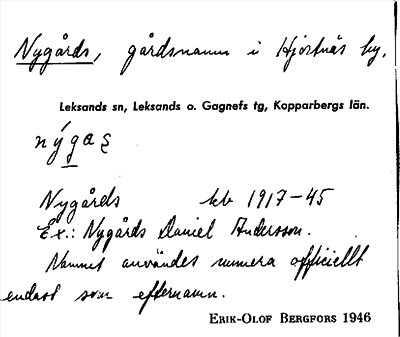 Nygårds, gårdsnamn i Hjortnäs by.
Leksands sn, Leksands o. Gagnefs tg, Kopparbergs län.
nýgas
Nygårds kb 1917-45
Ex.: Nygårds Daniel Andersson.
Namnet användes numera officiellt
endast som efternamn.
ERIK-OLOF BERGFORS 1946